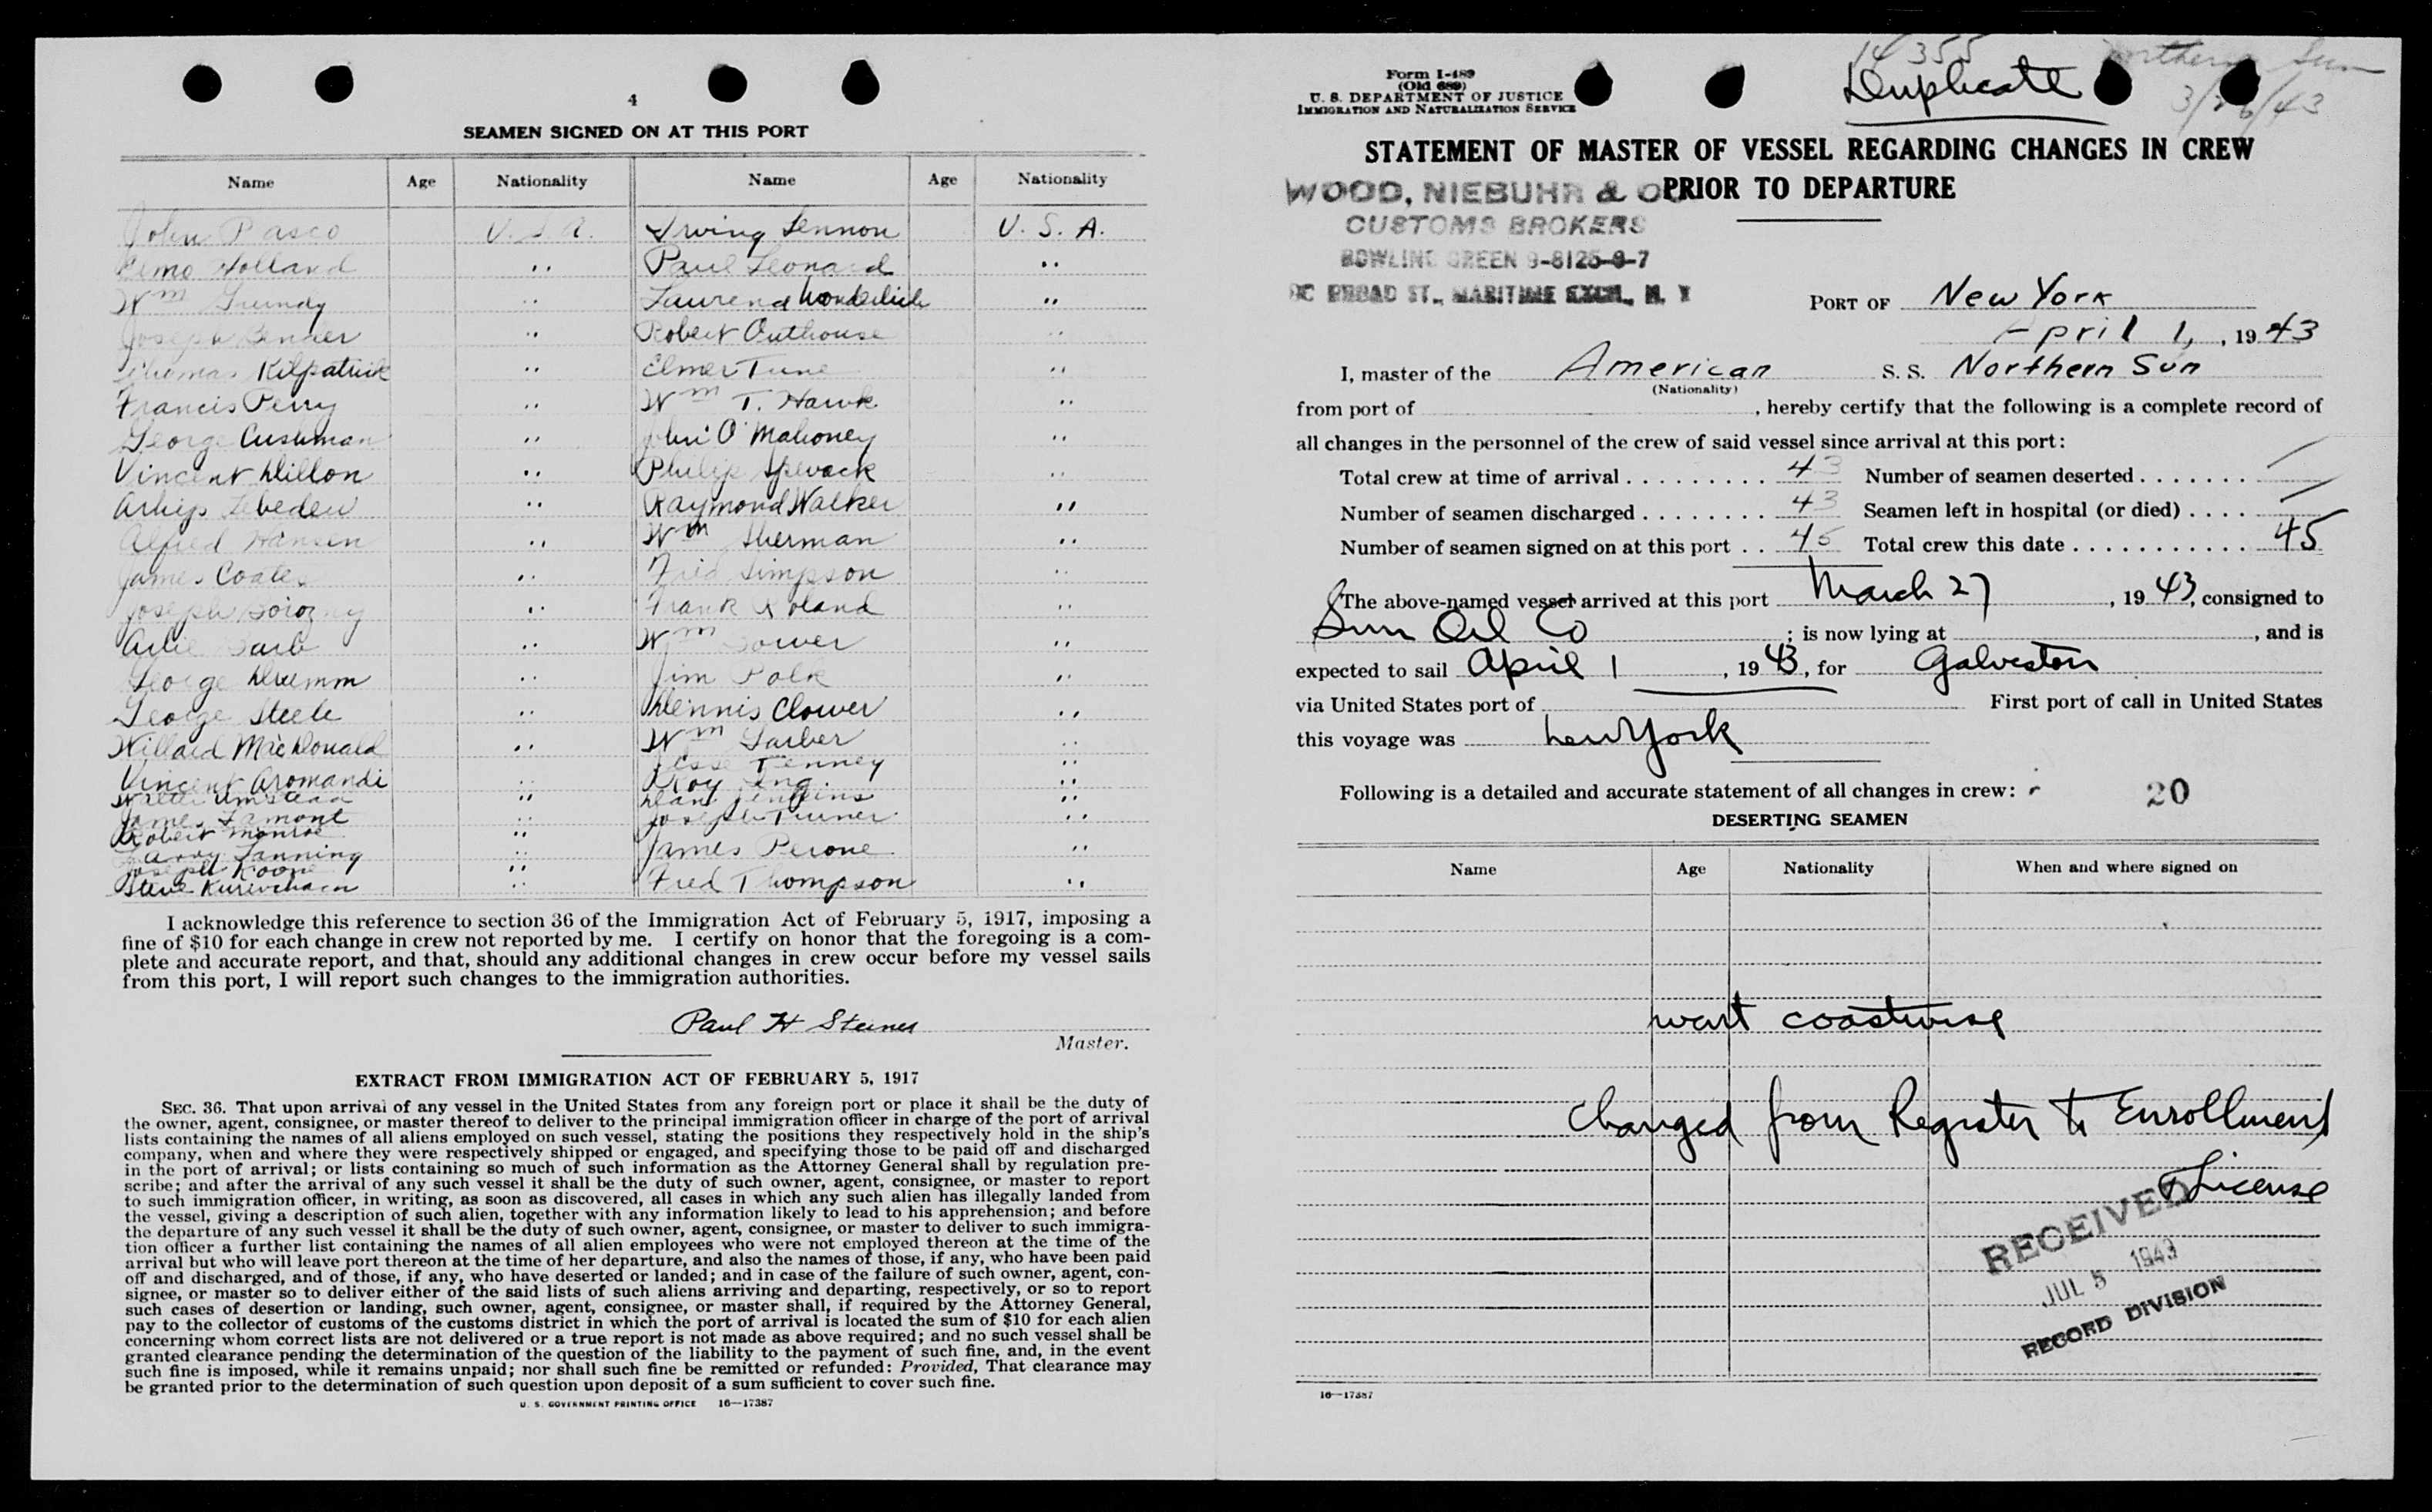 4
SEAMEN SIGNED ON AT THIS PORT
Name Age Nationality Name Age Nationality
John Pasco U.S.A. Irving Lennon U.S.A.
Elmo Holland " Paul Leonard "
Wm Grundy " Laurence Wonderlich "
Joseph Benner " Robert Outhouse "
Thomas Kilpatrick " Elmer Tune "
Francis Perry " Wm T. Hawk "
George Cushman " John O'Mahoney "
Vincent Dillon " Philip Spevack "
Arhip Lebedew " Raymond Walker "
Alfred Hansen " Wm Sherman "
James Coates " Fred Simpson "
Joseph " Frank Roland "
Arlie " Wm "
George Drumm " Jim Polk "
George Steele " Dennis Clower "
Willard MacDonald " Wm Garber "
Vincent Aromandi " Jesse Tenney "
Umstead " Roy "
James Lamont " Dean Jenkins "
Robert Monroe " Joseph Turner "
Harry Lanning " James Perone "
Joseph Koone " Fred Thompson "
Steve "
I acknowledge this reference to section 36 of the Immigration Act of February 5, 1917, imposing a
fine of $10 for each change in crew not reported by me. I certify on honor that the foregoing is a com-
plete and accurate report, and that, should any additional changes in crew occur before my vessel sails
from this port, I will report such changes to the immigration authorities.
Paul H Steiner
Master.
EXTRACT FROM IMMIGRATION ACT OF FEBRUARY 5, 1917
SEC. 36. That upon arrival of any vessel in the United States from any foreign port or place it shall be the duty of
the owner, agent, consignee, or master thereof to deliver to the principal immigration officer in charge of the port of arrival
lists containing the names of all aliens employed on such vessel, stating the positions they respectively hold in the ship's
company, when and where they were respectively shipped or engaged, and specifying those to be paid off and discharged
in the port of arrival; or lists containing so much of such information as the Attorney General shall by regulation pre-
scribe; and after the arrival of any such vessel it shall be the duty of such owner, agent, consignee, or master to report
to such immigration officer, in writing, as soon as discovered, all cases in which any such alien has illegally landed from
the vessel, giving a description of such alien, together with any information likely to lead to his apprehension; and before
the departure of any such vessel it shall be the duty of such owner, agent, consignee, or master to deliver to such immigra-
tion officer a further list containing the names of all alien employees who were not employed thereon at the time of the
arrival but who will leave port thereon at the time of her departure, and also the names of those, if any, who have been paid
off and discharged, and of those, if any, who have deserted or landed; and in case of the failure of such owner, agent, con-
signee, or master so to deliver either of the said lists of such aliens arriving and departing, respectively, or so to report
such cases of desertion or landing, such owner, agent, consignee, or master shall, if required by the Attorney General,
pay to the collector of customs of the customs district in which the port of arrival is located the sum of $10 for each alien
concerning whom correct lists are not delivered or a true report is not made as above required; and no such vessel shall be
granted clearance pending the determination of the question of the liability to the payment of such fine, and, in the event
such fine is imposed, while it remains unpaid; nor shall such fine be remitted or refunded: Provided, That clearance may
be granted prior to the determination of such question upon deposit of a sum sufficient to cover such fine.
U. S. GOVERNMENT PRINTING OFFICE 16—17387
14355 Northern Sun
3/26/43
Duplicate
Form I-489
(Old 689)
U. S. DEPARTMENT OF JUSTICE
IMMIGRATION AND NATURALIZATION SERVICE
STATEMENT OF MASTER OF VESSEL REGARDING CHANGES IN CREW
PRIOR TO DEPARTURE
WOOD, NIEBUHR & CO
CUSTOMS BROKERS
BOWLING GREEN 9-8125-6-7
BROAD ST., MARITIME EXCH., N. Y
PORT OF New York
April 1, , 1943
I, master of the American S. S. Northern Sun
(Nationality)
from port of , hereby certify that the following is a complete record of
all changes in the personnel of the crew of said vessel since arrival at this port:
Total crew at time of arrival 43 Number of seamen deserted /
Number of seamen discharged 43 Seamen left in hospital (or died) /
Number of seamen signed on at this port 45 Total crew this date 45
The above-named vessel arrived at this port March 27, 1943, consigned to
Sun Oil Co ; is now lying at , and is
expected to sail April 1, 1943, for Galveston
via United States port of First port of call in United States
this voyage was New York
Following is a detailed and accurate statement of all changes in crew: 20
DESERTING SEAMEN
Name Age Nationality When and where signed on
went coastwise
Changed from Register to Enrollment
& License
RECEIVED
JUL 5 1943
RECORD DIVISION
16—17387